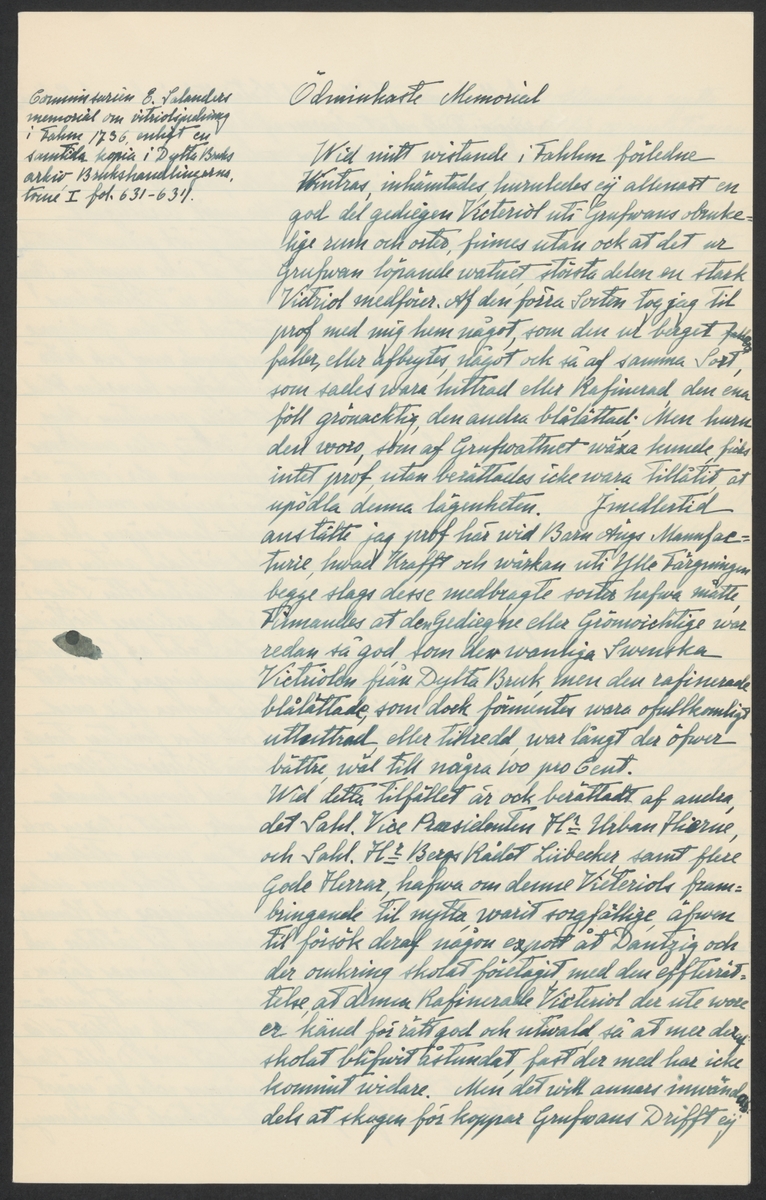 Commissarien E. Salanders
memorial om vitriolsjudning
i Falun 1736 enligt en
samtida kopia i Dylta Bruks
arkiv Brukshandlingarna,
tome I fol. 631-634.
Ödmiukaste Memorial
Wid mitt wistande i Fahlun förledne
Wintras, inhämtades, huruledes ej allenast en
god del gediegen Victeriol uti Grufwans obruke=
lige rum och orter, finnes utan ock at det ur
Grufwan löpande watnet, största delen en stark
Victriol medförer. Af den förra Sorten tog jag til
prof med mig hem något, som den ur berget
faller, eller afbrytes, något och så af samma Sort,
som sades wara luttrad eller Rafinerad, den ena
föll grönacktig, den andra blålättad. Men huru
den woro, som af Grufwattnet wäxa kunde, ficks
intet prof, utan berättades icke wara tillåtit, at
upödla denna lägenheten. Imedlertid
anstälte jag prof här wid Barn Ängs Manufac=
turie, hwad Krafft och wärkan uti Ylle Färgningen
begge slags desse medbragte sorter hafwa måtte,
Finnandes at den Gediegne eller Grönwichtige war
redan så god som den wanliga Swenska
Victriolen från Dylta Bruk, men den rafinerade
blålättade, som dock förmentes wara ofullkomligt
utluttrad, eller tillredd, war långt der öfwer
bättre, wäl till några 100 pro Cent.
Wid detta tilfället är ock berättadt af andra,
det Sahl. Vice Præsidenten Hr Urban Hierne,
och Sahl. Hr Bergs Rådet Lübecker, samt flere
Gode Herrar, hafwa om denne Victeriols fram=
bringande til nytta, warit sorgfällige, äfwen
til försök deraf någon export åt Dantzig och
der omkring skolat företagit med den effterrät=
telse, at denna Rafinerade Victeriol der ute wore
er känd för rätt god och utwald, så at mer deraf
skolat blifwit åstundat, fast der med har icke
kommit widare. Men, det will annars inwändas
dels at skogen för koppar Grufwans Drifft ej